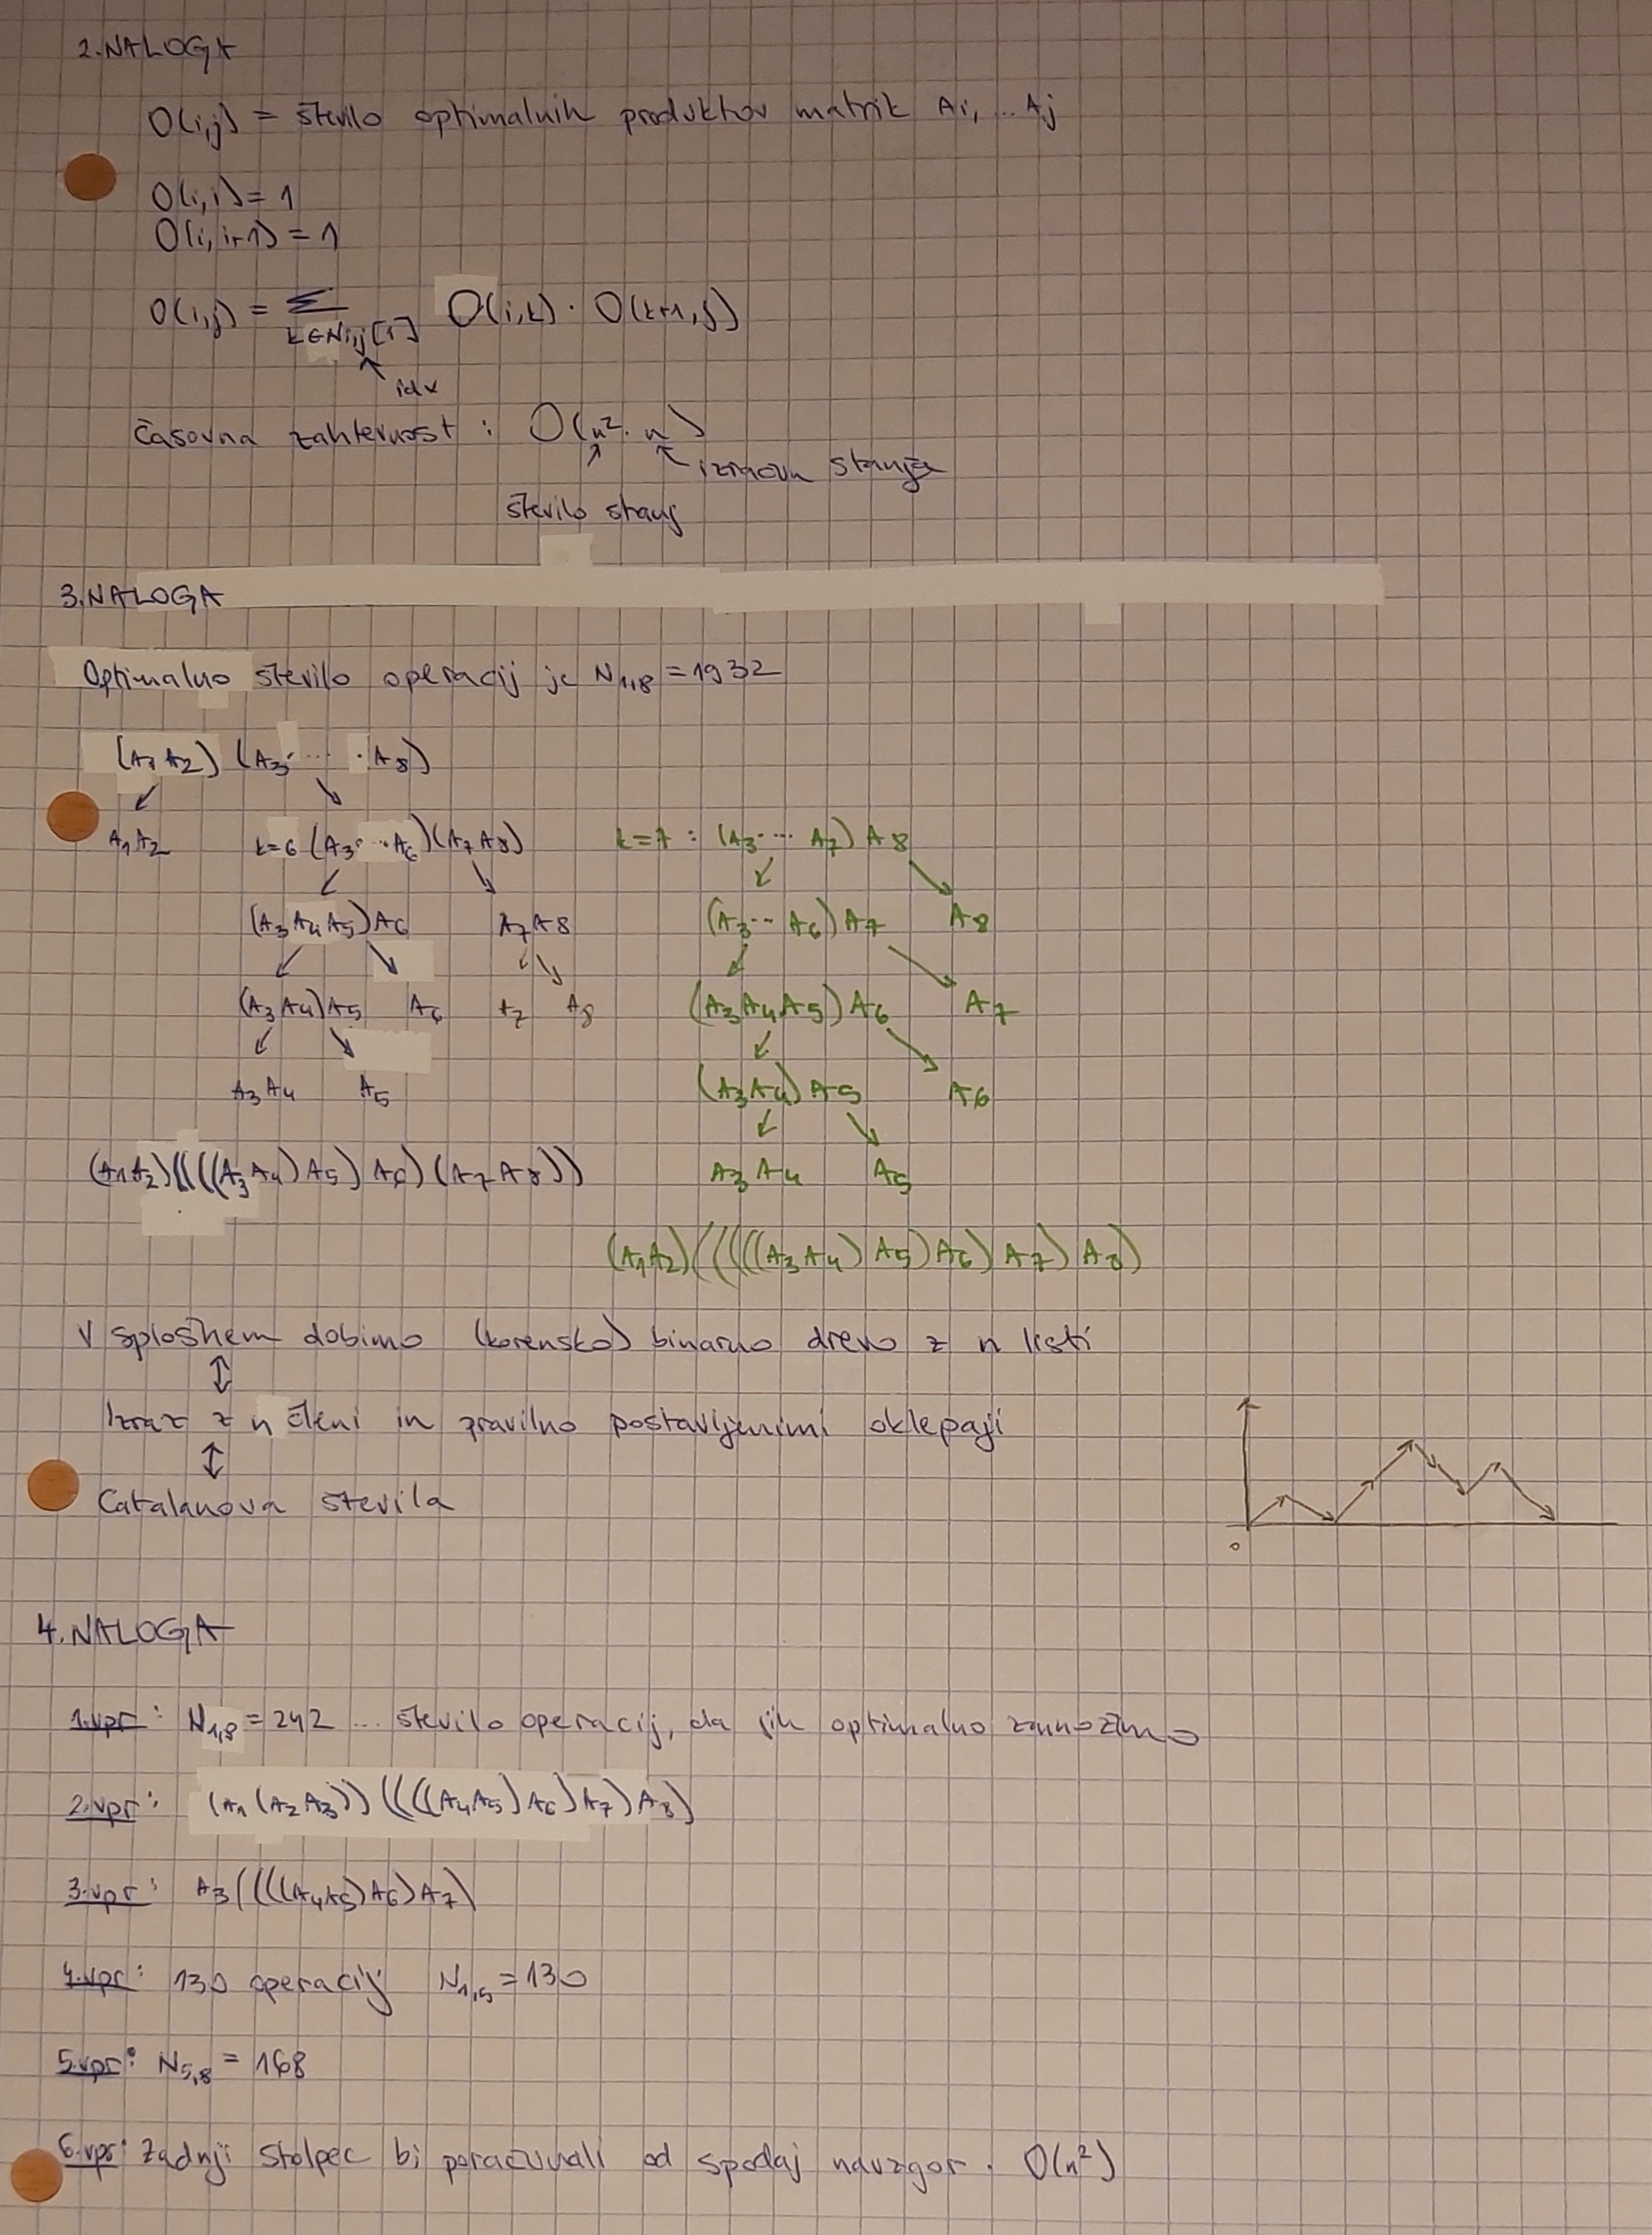 2. NALOGA
O(i,j) = število optimalnih produktov matrik Ai, ... Aj
O(i,i) = 1
O(i,i+1) = 1
O(i,j) = Σ O(i,k) · O(k+1,j)
k∈Ni,j[1]
idx
časovna zahtevnost : O(n²· n)
izračun stanja
število stanj
3. NALOGA
Optimalno število operacij je N1,8 = 1932
(A1 A2) (A3 · ... · A8)
A1 A2 k=6 (A3 ··· A6)(A7 A8) k=7 : (A3 ··· A7) A8
(A3 A4 A5) A6 A7 A8 (A3 ·· A6) A7 A8
(A3 A4) A5 A6 A7 A8 (A3 A4 A5) A6 A7
A3 A4 A5 (A3 A4) A5 A6
(A1 A2)((((A3 A4) A5) A6) (A7 A8)) A3 A4 A5
(A1 A2)(((((A3 A4) A5) A6) A7) A8)
V splošnem dobimo (korensko) binarno drevo z n listi
Izraz z n členi in pravilno postavljenimi oklepaji
Catalanova števila
0
4. NALOGA
1.vpr: N1,8 = 242 ... število operacij, da jih optimalno zmnožimo
2.vpr: (A1 (A2 A3)) ((((A4 A5) A6) A7) A8)
3.vpr: A3 ((((A4 A5) A6) A7)
4.vpr: 130 operacij N1,5 = 130
5.vpr: N5,8 = 168
6.vpr: Zadnji stolpec bi poračunali od spodaj navzgor. O(n²)